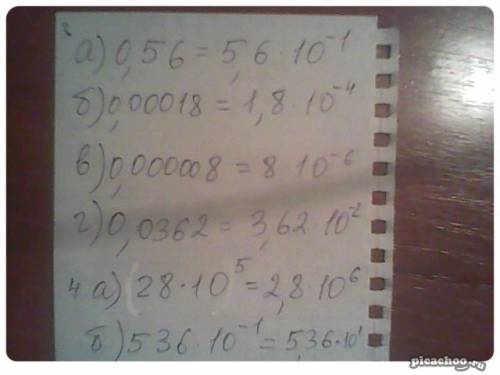 а) 0,56 = 5,6 · 10⁻¹
б) 0,00018 = 1,8 · 10⁻⁴
в) 0,000008 = 8 10⁻⁶
г) 0,0362 = 3,62 · 10⁻²
4 а) (28 · 10)⁵ = 2,8 · 10⁶
б) 536 · 10⁻¹ = 5,36 · 10¹
picachoo.ru